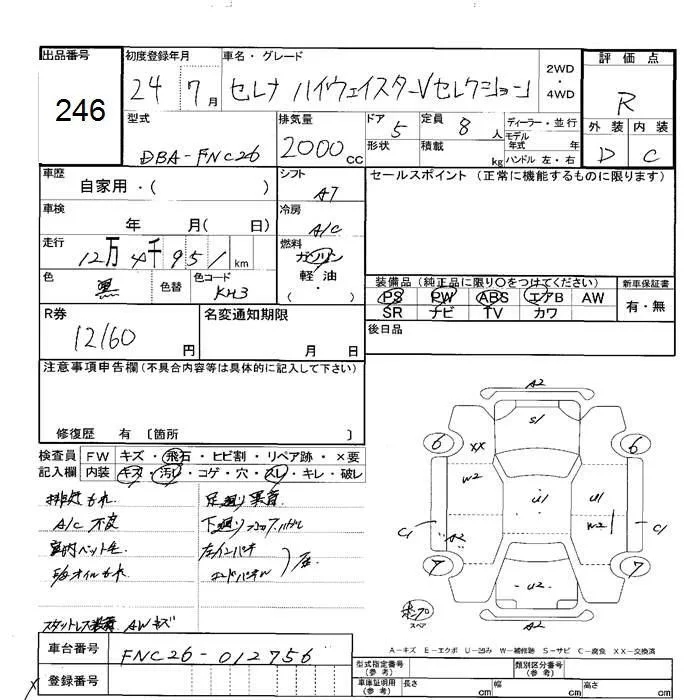 出品番号
246
初度登録年月
24 7月
車名・グレード
セレナ ハイウェイスターVセレクション
2WD
・
4WD
評価点
R
外装 内装
D C
型式
DBA-FNC26
排気量
2000cc
ドア 5
形状
定員 8人
積載 kg
ディーラー・並行
モデル
年式 年
ハンドル 左・右
車歴
自家用・( )
シフト
AT
車検
年 月( 日)
冷房
A/C
走行
12万4千951km
燃料
ガソリン
軽油
( ・ )
色
黒
色替
色コード
KH3
R券
12160円
名変通知期限
月 日
セールスポイント(正常に機能するものに限ります)
装備品(純正品に限り〇をつけてください)
PS PW ABS エアB AW
SR ナビ TV カワ
新車保証書
有・無
後日品
注意事項申告欄(不具合内容等は具体的に記入して下さい)
修復歴 有 〔箇所 〕
検査員
記入欄
FW キズ・飛石・ヒビ割・リペア跡・×要
内装 キズ・汚レ・コゲ・穴・スレ・キレ・破レ
A/C 不良
スタットレス装着 AWキズ
A2
S/
6 6
XX
W2 W2
U/ U/
C/ C/
"A2"
7 7
U2
A2
スペア
A-キズ E-エクボ U-凹み W-補修跡 S-サビ C-腐食 XX-交換済
車台番号
FNC26-012756
登録番号
型式指定番号
(参考)
類別区分番号
(参考)
車庫証明用
(参考)
長さ cm
幅 cm
高さ cm